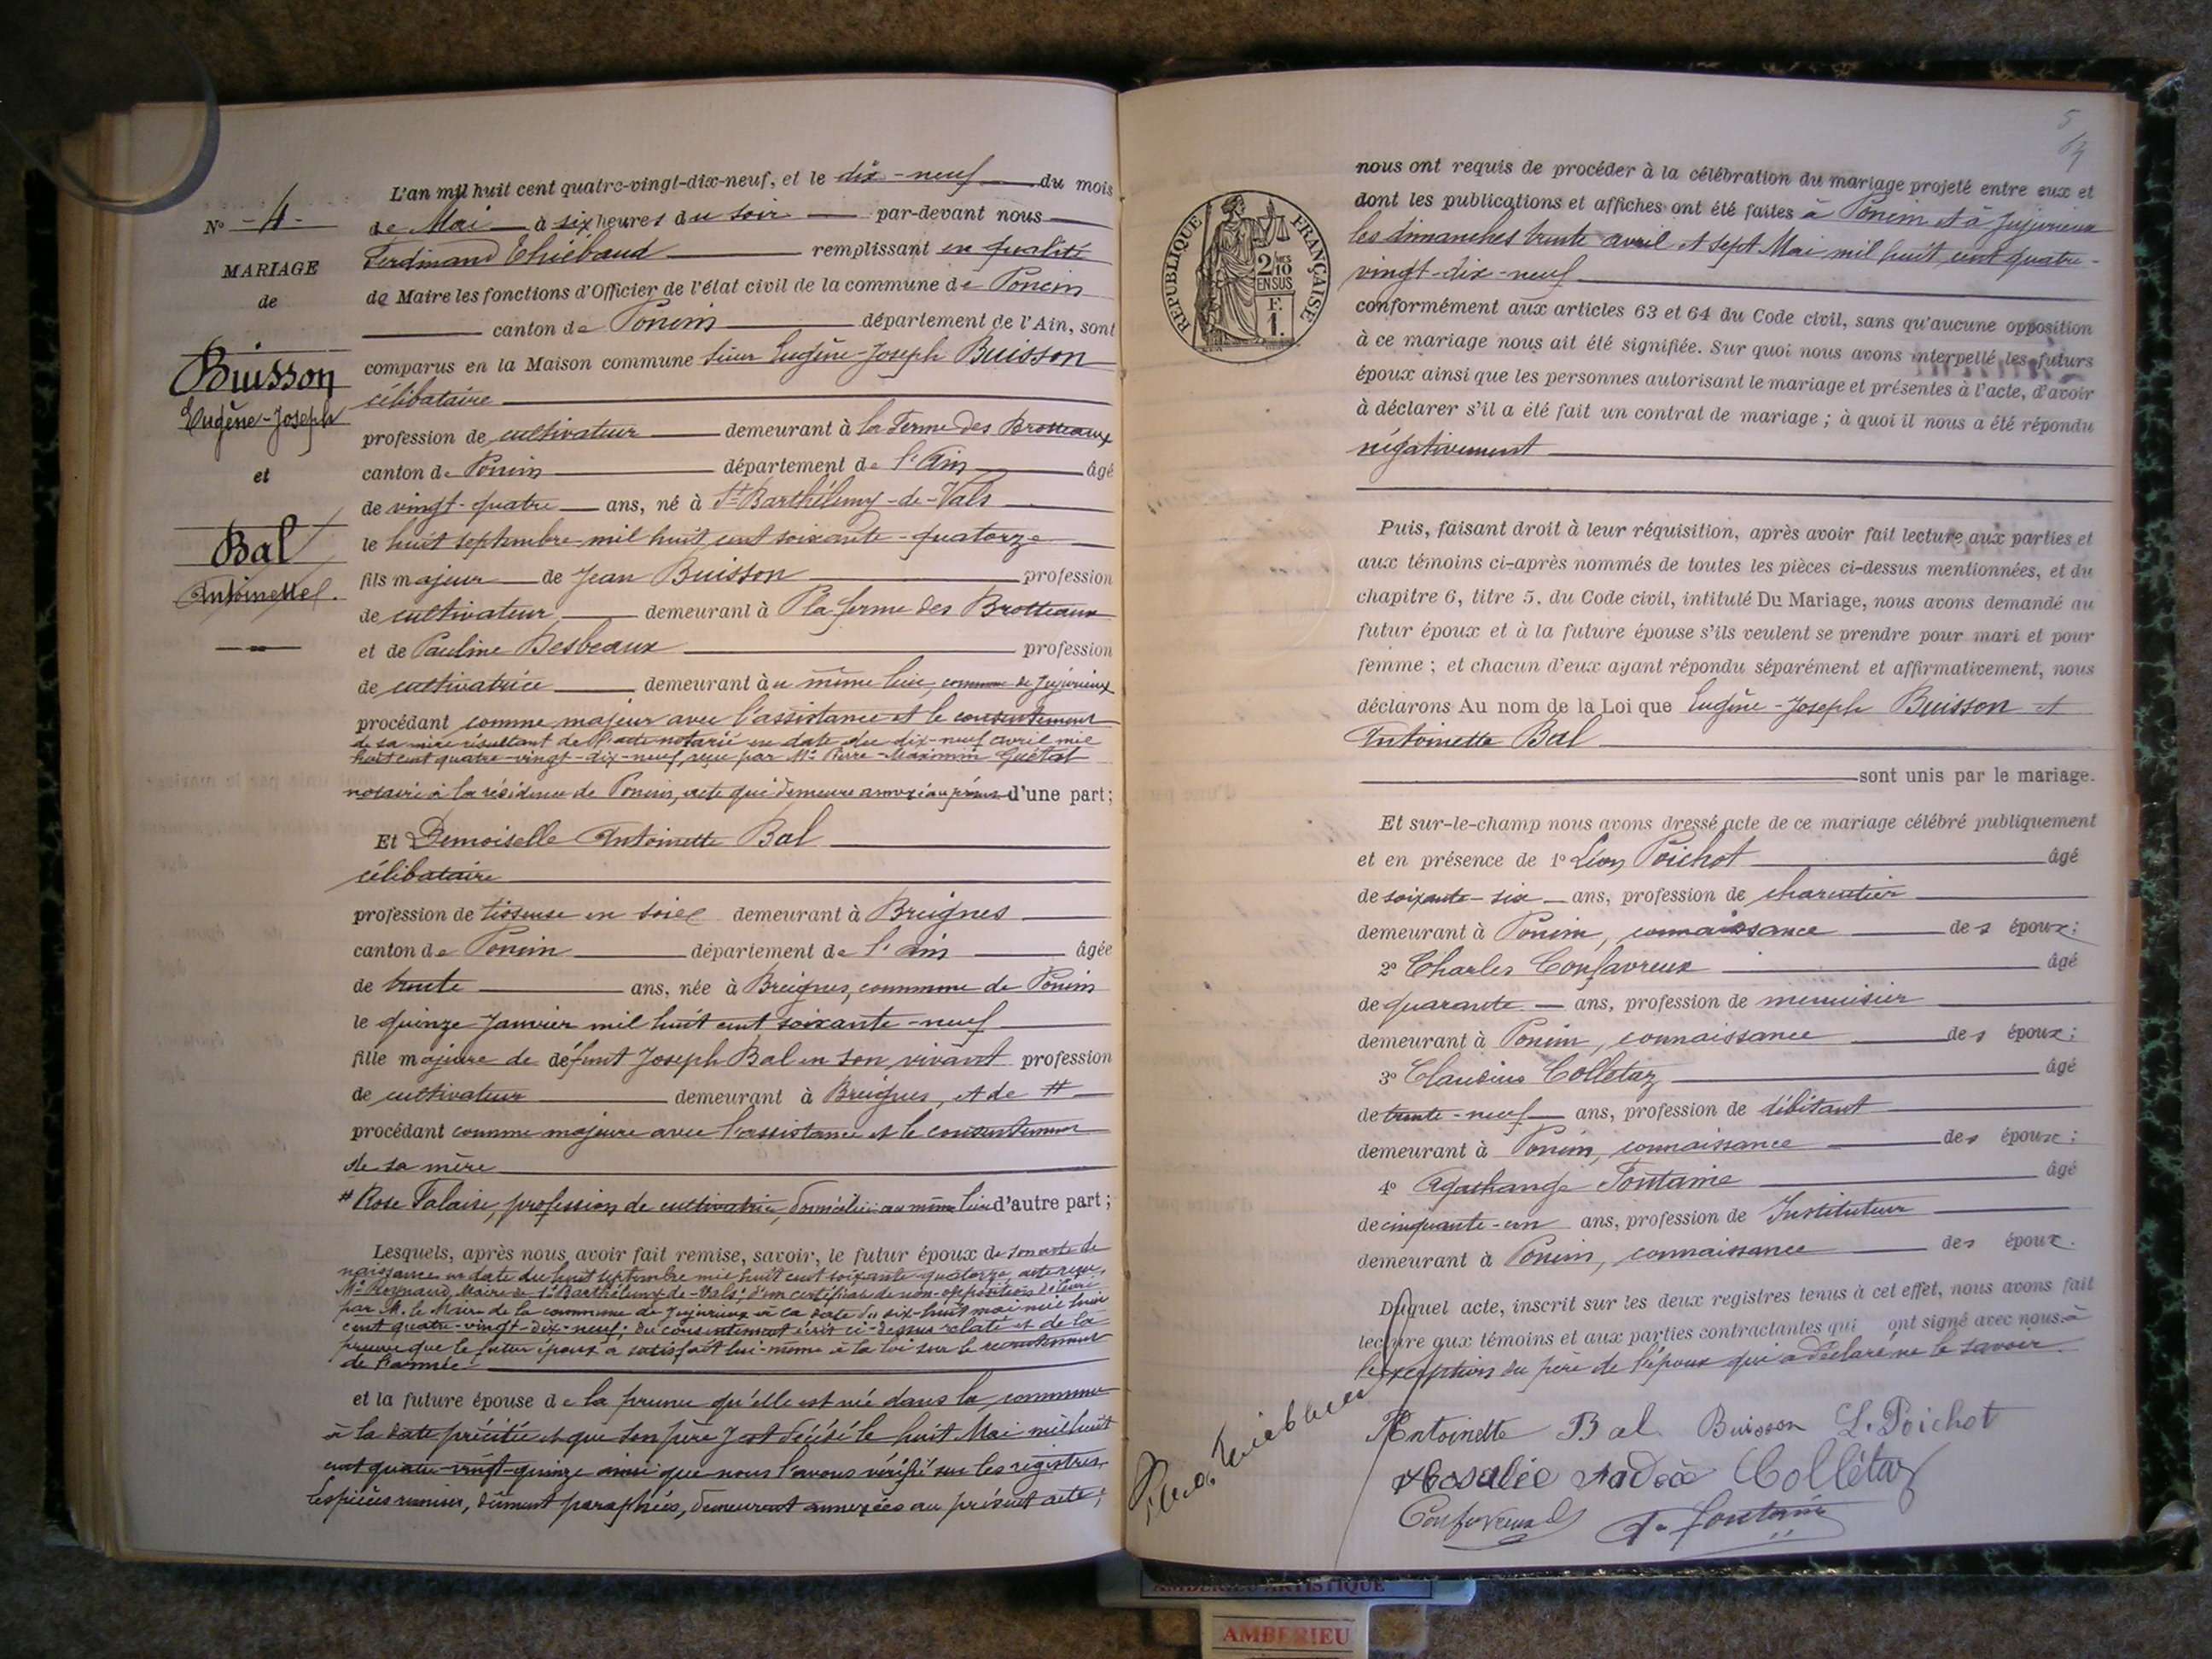 L'an mil huit cent quatre-vingt-dix-neuf, et le dix-neuf du mois
de Mai à six heures du soir par-devant nous
Ferdinand Thiébaud remplissant en qualité
de Maire les fonctions d'Officier de l'état civil de la commune de Poncin
canton de Poncin département de l'Ain, sont
comparus en la Maison commune sieur Eugène-Joseph Buisson
célibataire
profession de cultivateur demeurant à la Ferme des Brotteaux
canton de Poncin département de l'Ain âgé
de vingt-quatre ans, né à St Barthélemy-de-Vals
le huit septembre mil huit cent soixante-quatorze
fils majeur de Jean Buisson profession
de cultivateur demeurant à la ferme des Brotteaux
et de Pauline Desbeaux profession
de cultivatrice demeurant au même lieu, commune de Jujurieux
procédant comme majeur avec l'assistance et le consentement
de sa mère résultant de l'acte notarié en date du dix-neuf avril mil
huit cent quatre-vingt-dix-neuf, reçu par Me Pierre-Maximin Guétat
notaire à la résidence de Poncin, acte qui demeure annexé au présent d'une part;
Et Demoiselle Antoinette Bal
célibataire
profession de tisseuse en soie demeurant à Breignes
canton de Poncin département de l'Ain âgée
de trente ans, née à Breignes, commune de Poncin
le quinze Janvier mil huit cent soixante-neuf
fille majeure de défunt Joseph Bal en son vivant profession
de cultivateur demeurant à Breignes, et de #
procédant comme majeure avec l'assistance et le consentement
de sa mère
# Rose Falaise, profession de cultivatrice, domiciliée au même lieu d'autre part;
Lesquels, après nous avoir fait remise, savoir, le futur époux de son acte de
naissance en date du huit septembre mil huit cent soixante quatorze, acte reçu
Mr Reynaud, Maire de St Barthélemy-de-Vals; d'un certificat de non-opposition délivré
par M. le Maire de la commune de Jujurieux à la date du dix-huit mai mil huit
cent quatre-vingt-dix-neuf; du consentement écrit ci-dessus relaté et de la
preuve que le futur époux a satisfait lui-même à la loi sur le recrutement
de l'armée
et la future épouse de la preuve qu'elle est née dans la commune
à la date précitée et que son père y est décédé le huit Mai mil huit
cent quatre-vingt-quinze ainsi que nous l'avons vérifié sur les registres.
Les pièces remises, dûment paraphées, demeurent annexées au présent acte;
No -4-
MARIAGE
de
Buisson
Eugène-Joseph
et
Bal
Antoinette
5
RÉPUBLIQUE FRANÇAISE
2/10
EN SUS
F.
1.
nous ont requis de procéder à la célébration du mariage projeté entre eux et
dont les publications et affiches ont été faites à Poncin et à Jujurieux
les dimanches trente avril et sept Mai mil huit cent quatre-
vingt-dix-neuf
conformément aux articles 63 et 64 du Code civil, sans qu'aucune opposition
à ce mariage nous ait été signifiée. Sur quoi nous avons interpellé les futurs
époux ainsi que les personnes autorisant le mariage et présentes à l'acte, d'avoir
à déclarer s'il a été fait un contrat de mariage; à quoi il nous a été répondu
négativement
Puis, faisant droit à leur réquisition, après avoir fait lecture aux parties et
aux témoins ci-après nommés de toutes les pièces ci-dessus mentionnées, et du
chapitre 6, titre 5, du Code civil, intitulé Du Mariage, nous avons demandé au
futur époux et à la future épouse s'ils veulent se prendre pour mari et pour
femme; et chacun d'eux ayant répondu séparément et affirmativement, nous
déclarons Au nom de la Loi que Eugène-Joseph Buisson et
Antoinette Bal
sont unis par le mariage.
Et sur-le-champ nous avons dressé acte de ce mariage célébré publiquement
et en présence de 1o Léon Poichot âgé
de soixante-six ans, profession de charcutier
demeurant à Poncin, connaissance des époux;
2o Charles Confavreux âgé
de quarante ans, profession de menuisier
demeurant à Poncin, connaissance des époux;
3o Claudius Collétaz âgé
de trente-neuf ans, profession de débitant
demeurant à Poncin, connaissance des époux;
4o Agathange Fontaine âgé
de cinquante-un ans, profession de Instituteur
demeurant à Poncin, connaissance des époux.
Duquel acte, inscrit sur les deux registres tenus à cet effet, nous avons fait
lecture aux témoins et aux parties contractantes qui ont signé avec nous à
l'exception du père de l'époux qui a déclaré ne le savoir.
Antoinette Bal Buisson L. Poichot
Collétaz
Confavreux A. Fontaine
AMBERIEU ARTISTIQUE
AMBERIEU